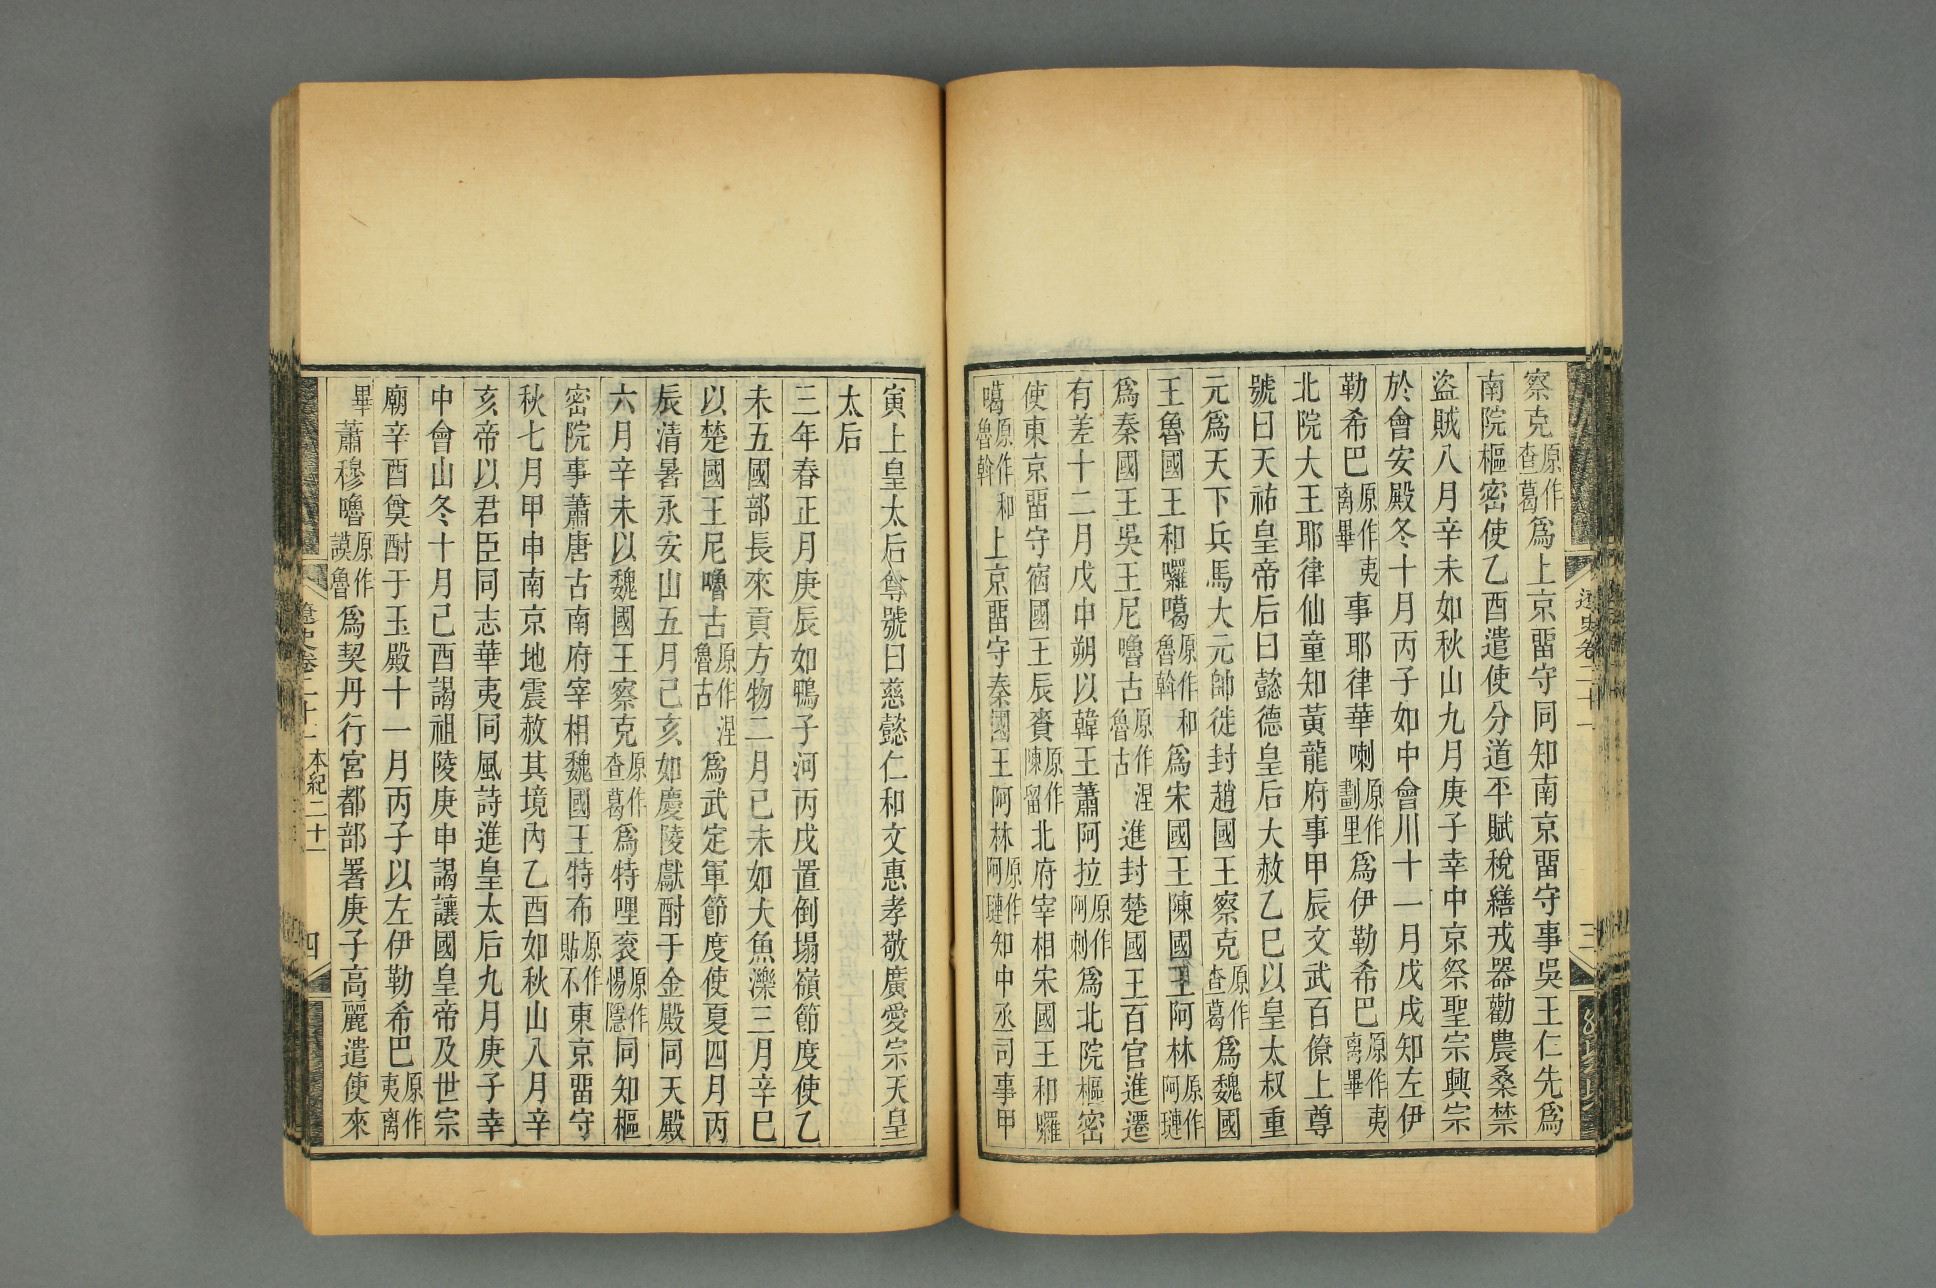 察克原作查葛爲上京畱守同知南京畱守事吳王仁先爲
南院樞密使乙酉遣使分道平賦稅繕戎器勸農桑禁
盜賊八月辛未如秋山九月庚子幸中京祭聖宗興宗
於會安殿冬十月丙子如中會川十一月戊戌知左伊
勒希巴原作夷离畢事耶律華喇原作劃里爲伊勒希巴原作夷离畢
北院大王耶律仙童知黃龍府事甲辰文武百僚上尊
號曰天祐皇帝后曰懿德皇后大赦乙巳以皇太叔重
元爲天下兵馬大元帥徙封趙國王察克原作查葛爲魏國
王魯國王和囉噶原作和魯斡爲宋國王陳國王阿林原作阿璉
爲秦國王吳王尼嚕古原作涅魯古進封楚國王百官進遷
有差十二月戊申朔以韓王蕭阿拉原作阿剌爲北院樞密
使東京畱守宿國王辰賚原作陳留北府宰相宋國王和囉
噶原作和魯斡上京畱守秦國王阿林原作阿璉知中丞司事甲
寅上皇太后尊號曰慈懿仁和文惠孝敬廣愛宗天皇
太后
三年春正月庚辰如鴨子河丙戌置倒塌嶺節度使乙
未五國部長來貢方物二月己未如大魚濼三月辛巳
以楚國王尼嚕古原作涅魯古爲武定軍節度使夏四月丙
辰清暑永安山五月己亥如慶陵獻酎于金殿同天殿
六月辛未以魏國王察克原作查葛爲特哩衮原作惕隱同知樞
密院事蕭唐古南府宰相魏國王特布原作貼不東京畱守
秋七月甲申南京地震赦其境內乙酉如秋山八月辛
亥帝以君臣同志華夷同風詩進皇太后九月庚子幸
中會山冬十月己酉謁祖陵庚申謁讓國皇帝及世宗
廟辛酉奠酎于玉殿十一月丙子以左伊勒希巴原作夷离
畢蕭穆嚕原作謨魯爲契丹行宮都部署庚子高麗遣使來
遼史卷二十一 本紀二十一 四
遼史卷二十一 三